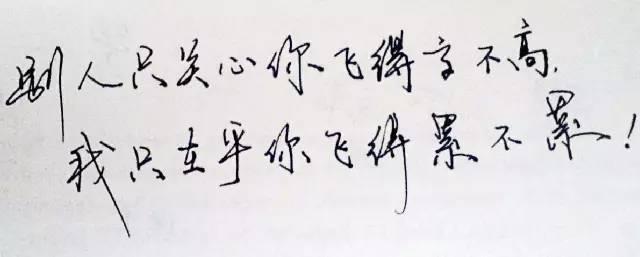 别人只关心你飞得高不高,
我只在乎你飞得累不累!